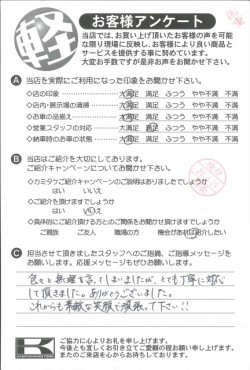 軽
お客様アンケート
当店では、お買い上げ頂いたお客様の声を可能
な限り現場に反映し、お客様により良い商品と
サービスを提供する事に努めています。
大変お手数ですが是非お声をお聞かせ下さい。
A 当店を実際にご利用になった印象をお聞かせ下さい。
◇店の印象 大満足 満足 ふつう やや不満 不満
◇店内・展示場の清掃 大満足 満足 ふつう やや不満 不満
◇お車の品揃え 大満足 満足 ふつう やや不満 不満
◇営業スタッフの対応 大満足 満足 ふつう やや不満 不満
◇納車時のお車の状態 大満足 満足 ふつう やや不満 不満
B 当店はご紹介を大切にしてあります。
ご紹介キャンペーンについてお聞かせ下さい。
◇カミタケご紹介キャンペーンのご説明はありましたでしょうか
はい いいえ
◇ご紹介を頂けますでしょうか
はい いいえ
◇具体的にご紹介頂ける方とのご関係をお聞かせ頂けますでしょうか
ご親族 ご友人 職場の方 機会があれば紹介したい
C 担当させて頂きましたスタッフへのご指摘、ご指導メッセージを
お願いします。応援メッセージもぜひお願いします。
色々と無理を言ってしまいましたが、とても丁寧に対応
して頂きました。ありがとうございました。
これからも素敵な笑顔で頑張って下さい!!
K
ご協力に心よりお礼を申し上げます。
今後とも宜しくお引き立てご愛顧の程お願い申し上げます。
またのご来店を心からお待ちしております。